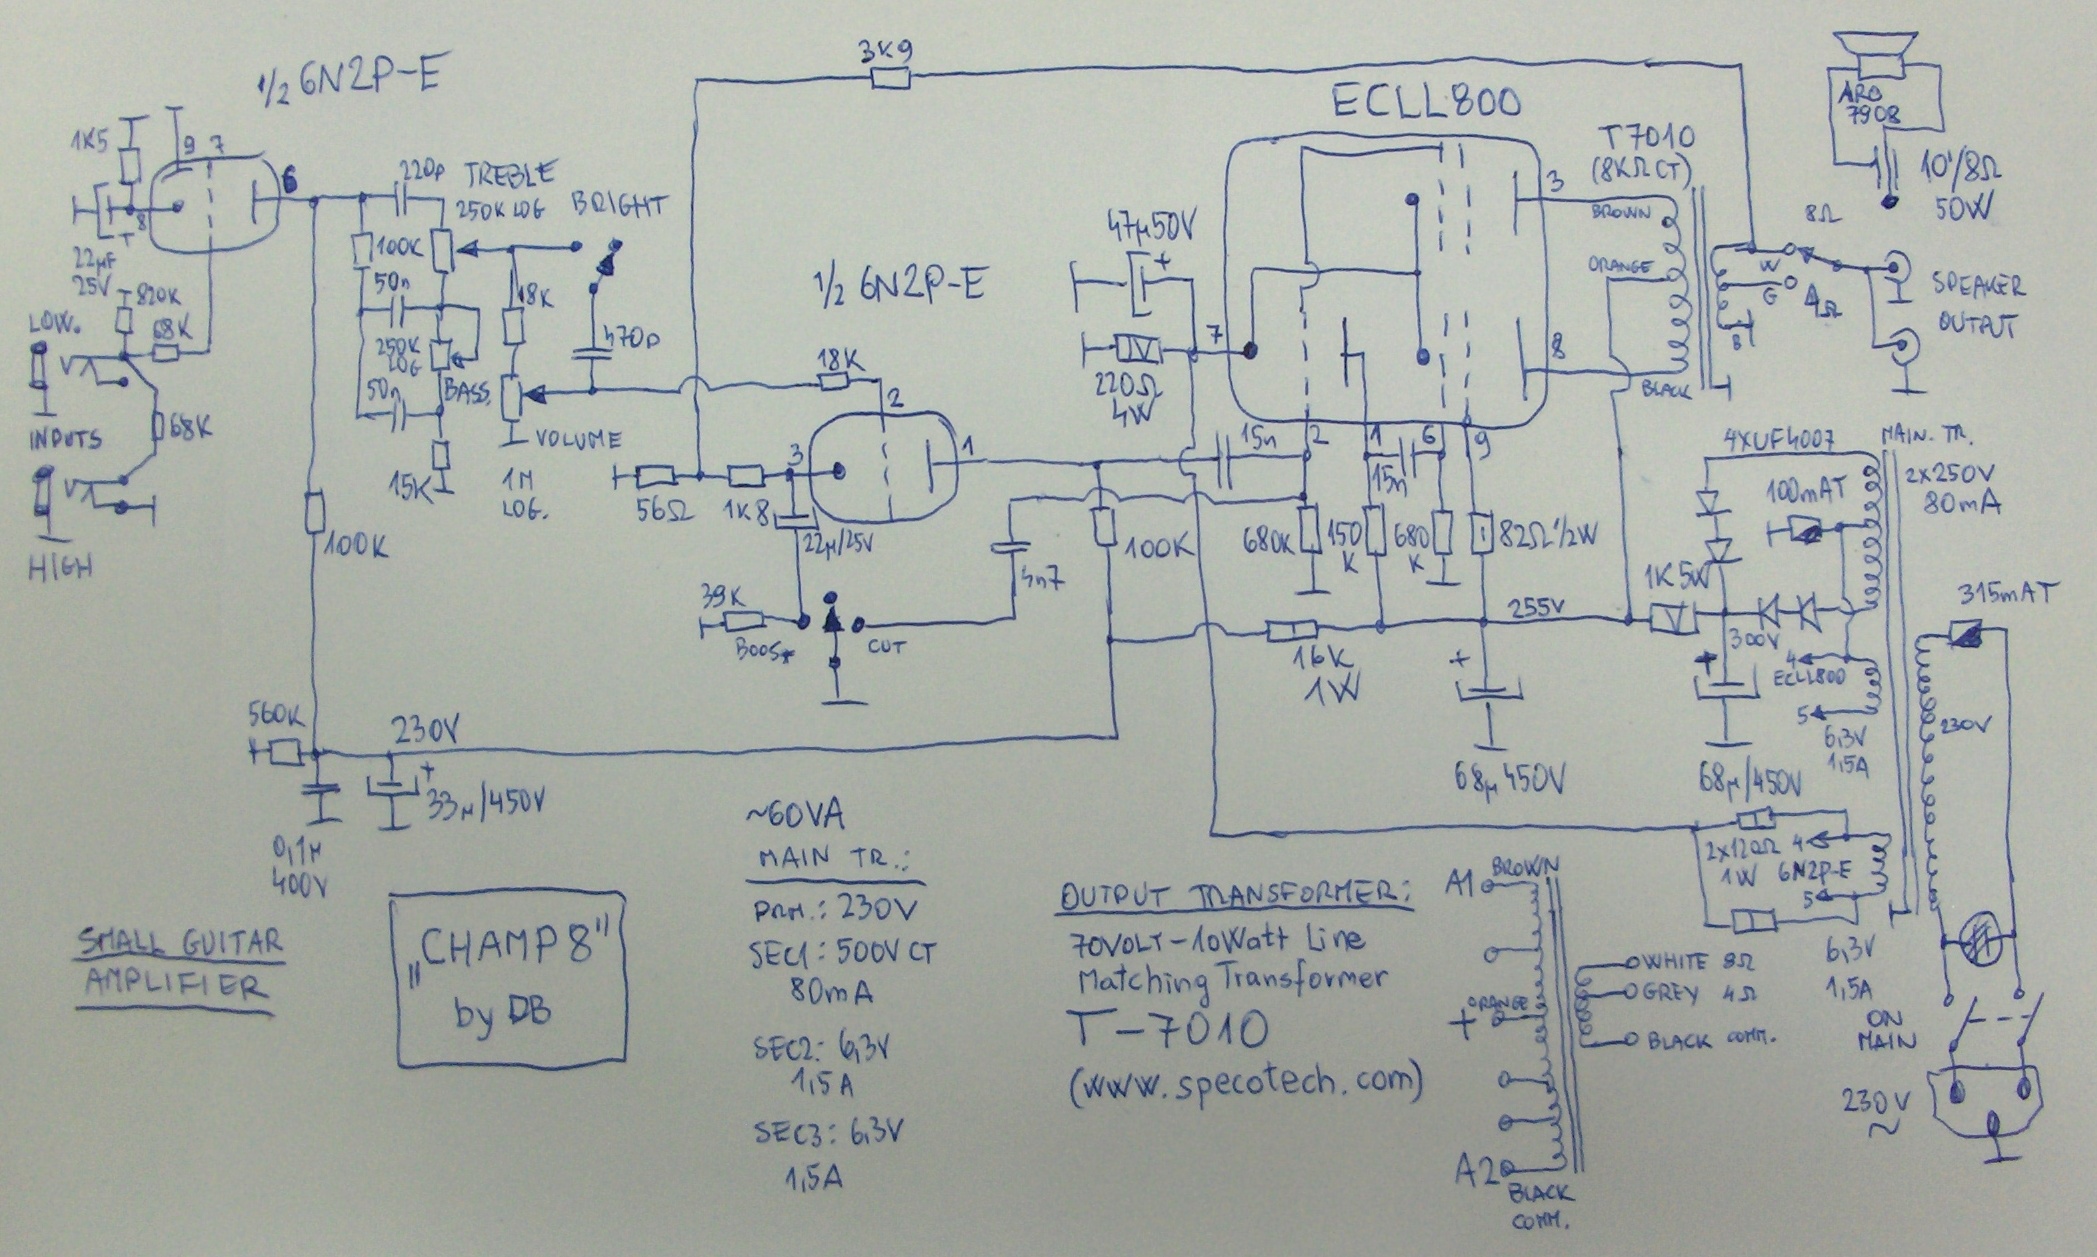 1/2 6N2P-E
1K5
9 7
6
8
22µF
25V
820K
68K
LOW.
INPUTS
68K
HIGH
220p
TREBLE
250K LOG
BRIGHT
100K
50n
18K
470p
250K
LOG
BASS
50n
15K
VOLUME
1M
LOG.
100K
560K
230V
33µ/450V
0,1M
400V
3K9
1/2 6N2P-E
18K
2
3
1
56Ω
1K8
22µ/25V
39K
BOOST
CUT
4n7
100K
15n
ECLL800
47µ50V
+
220Ω
4W
7
3
8
2 1 6 9
15n
680K
150
K
680
K
82Ω 1/2W
16K
1W
255V
+
68µ 450V
T7010
(8KΩ CT)
BROWN
ORANGE
BLACK
8Ω
W
G
4Ω
B
SPEAKER
OUTPUT
ARO
7908
10"/8Ω
50W
4XUF4007
MAIN. TR.
2x250V
80mA
100mAT
1K 5W
300V
+
68µ/450V
4
ECLL800
5
6,3V
1,5A
315mAT
230V
2x120Ω
1W
4
6N2P-E
5
6,3V
1,5A
ON
MAIN
230V
~
SMALL GUITAR
AMPLIFIER
„CHAMP 8"
by DB
~60VA
MAIN TR.:
PRM.: 230V
SEC1: 500V CT
80mA
SEC2: 6,3V
1,5A
SEC3: 6,3V
1,5A
OUTPUT TRANSFORMER:
70VOLT-10Watt Line
Matching Transformer
T-7010
(www.specotech.com)
A1
BROWN
+
ORANGE
A2
BLACK
COMM.
WHITE 8Ω
GREY 4Ω
BLACK COMM.